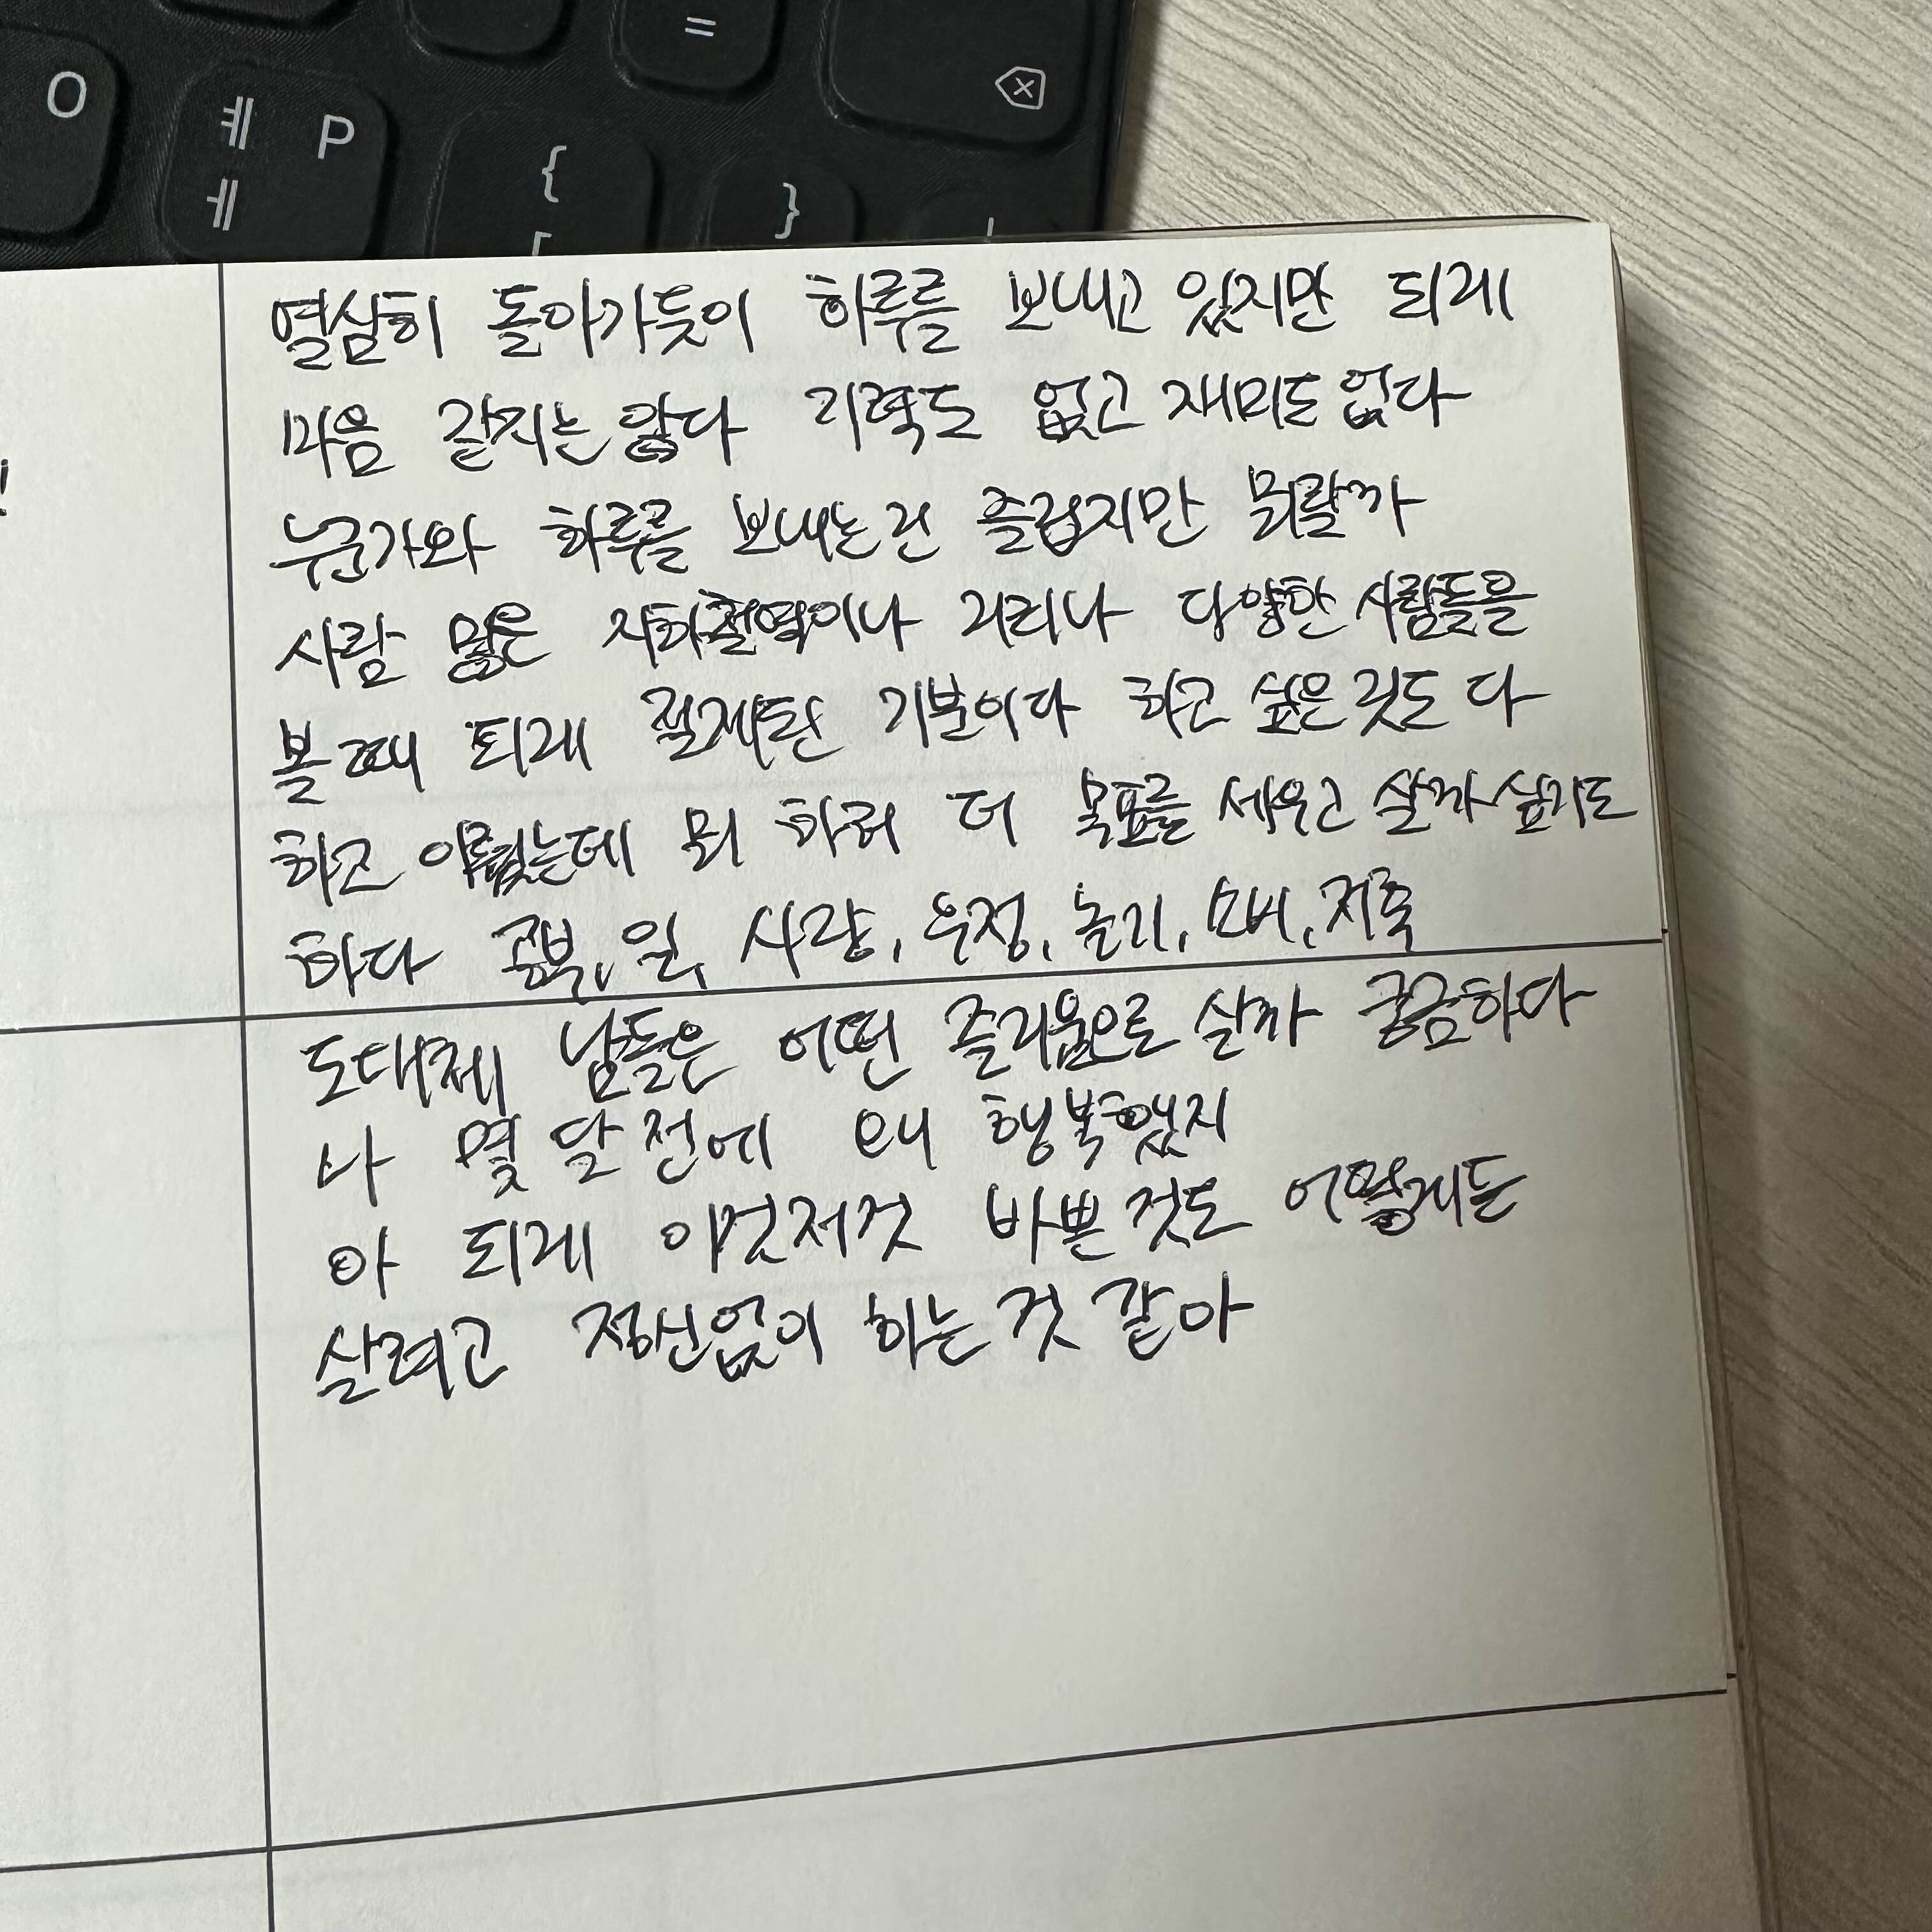 =
O
ㅖ P
ㅔ
{
[
}
열심히 돌아가듯이 하루를 보내고 있지만 되게
마음 같지는 않다 기력도 없고 재미도 없다
누군가와 하루를 보내는건 즐겁지만 뭐랄까
사람 많은 지하철역이나 거리나 다양한 사람들을
볼때 되게 절제된 기분이다 하고 싶은 것도 다
하고 이뤘는데 뭐 하러 더 목표를 세우고 살까싶기도
하다 공부, 일, 사랑, 우정, 놀기, 소비, 저축
도대체 남들은 어떤 즐거움으로 살까 궁금하다
나 몇 달 전에 왜 행복했지
아 되게 이것저것 바쁜 것도 어떻게든
살려고 정신없이 하는 것 같아
!